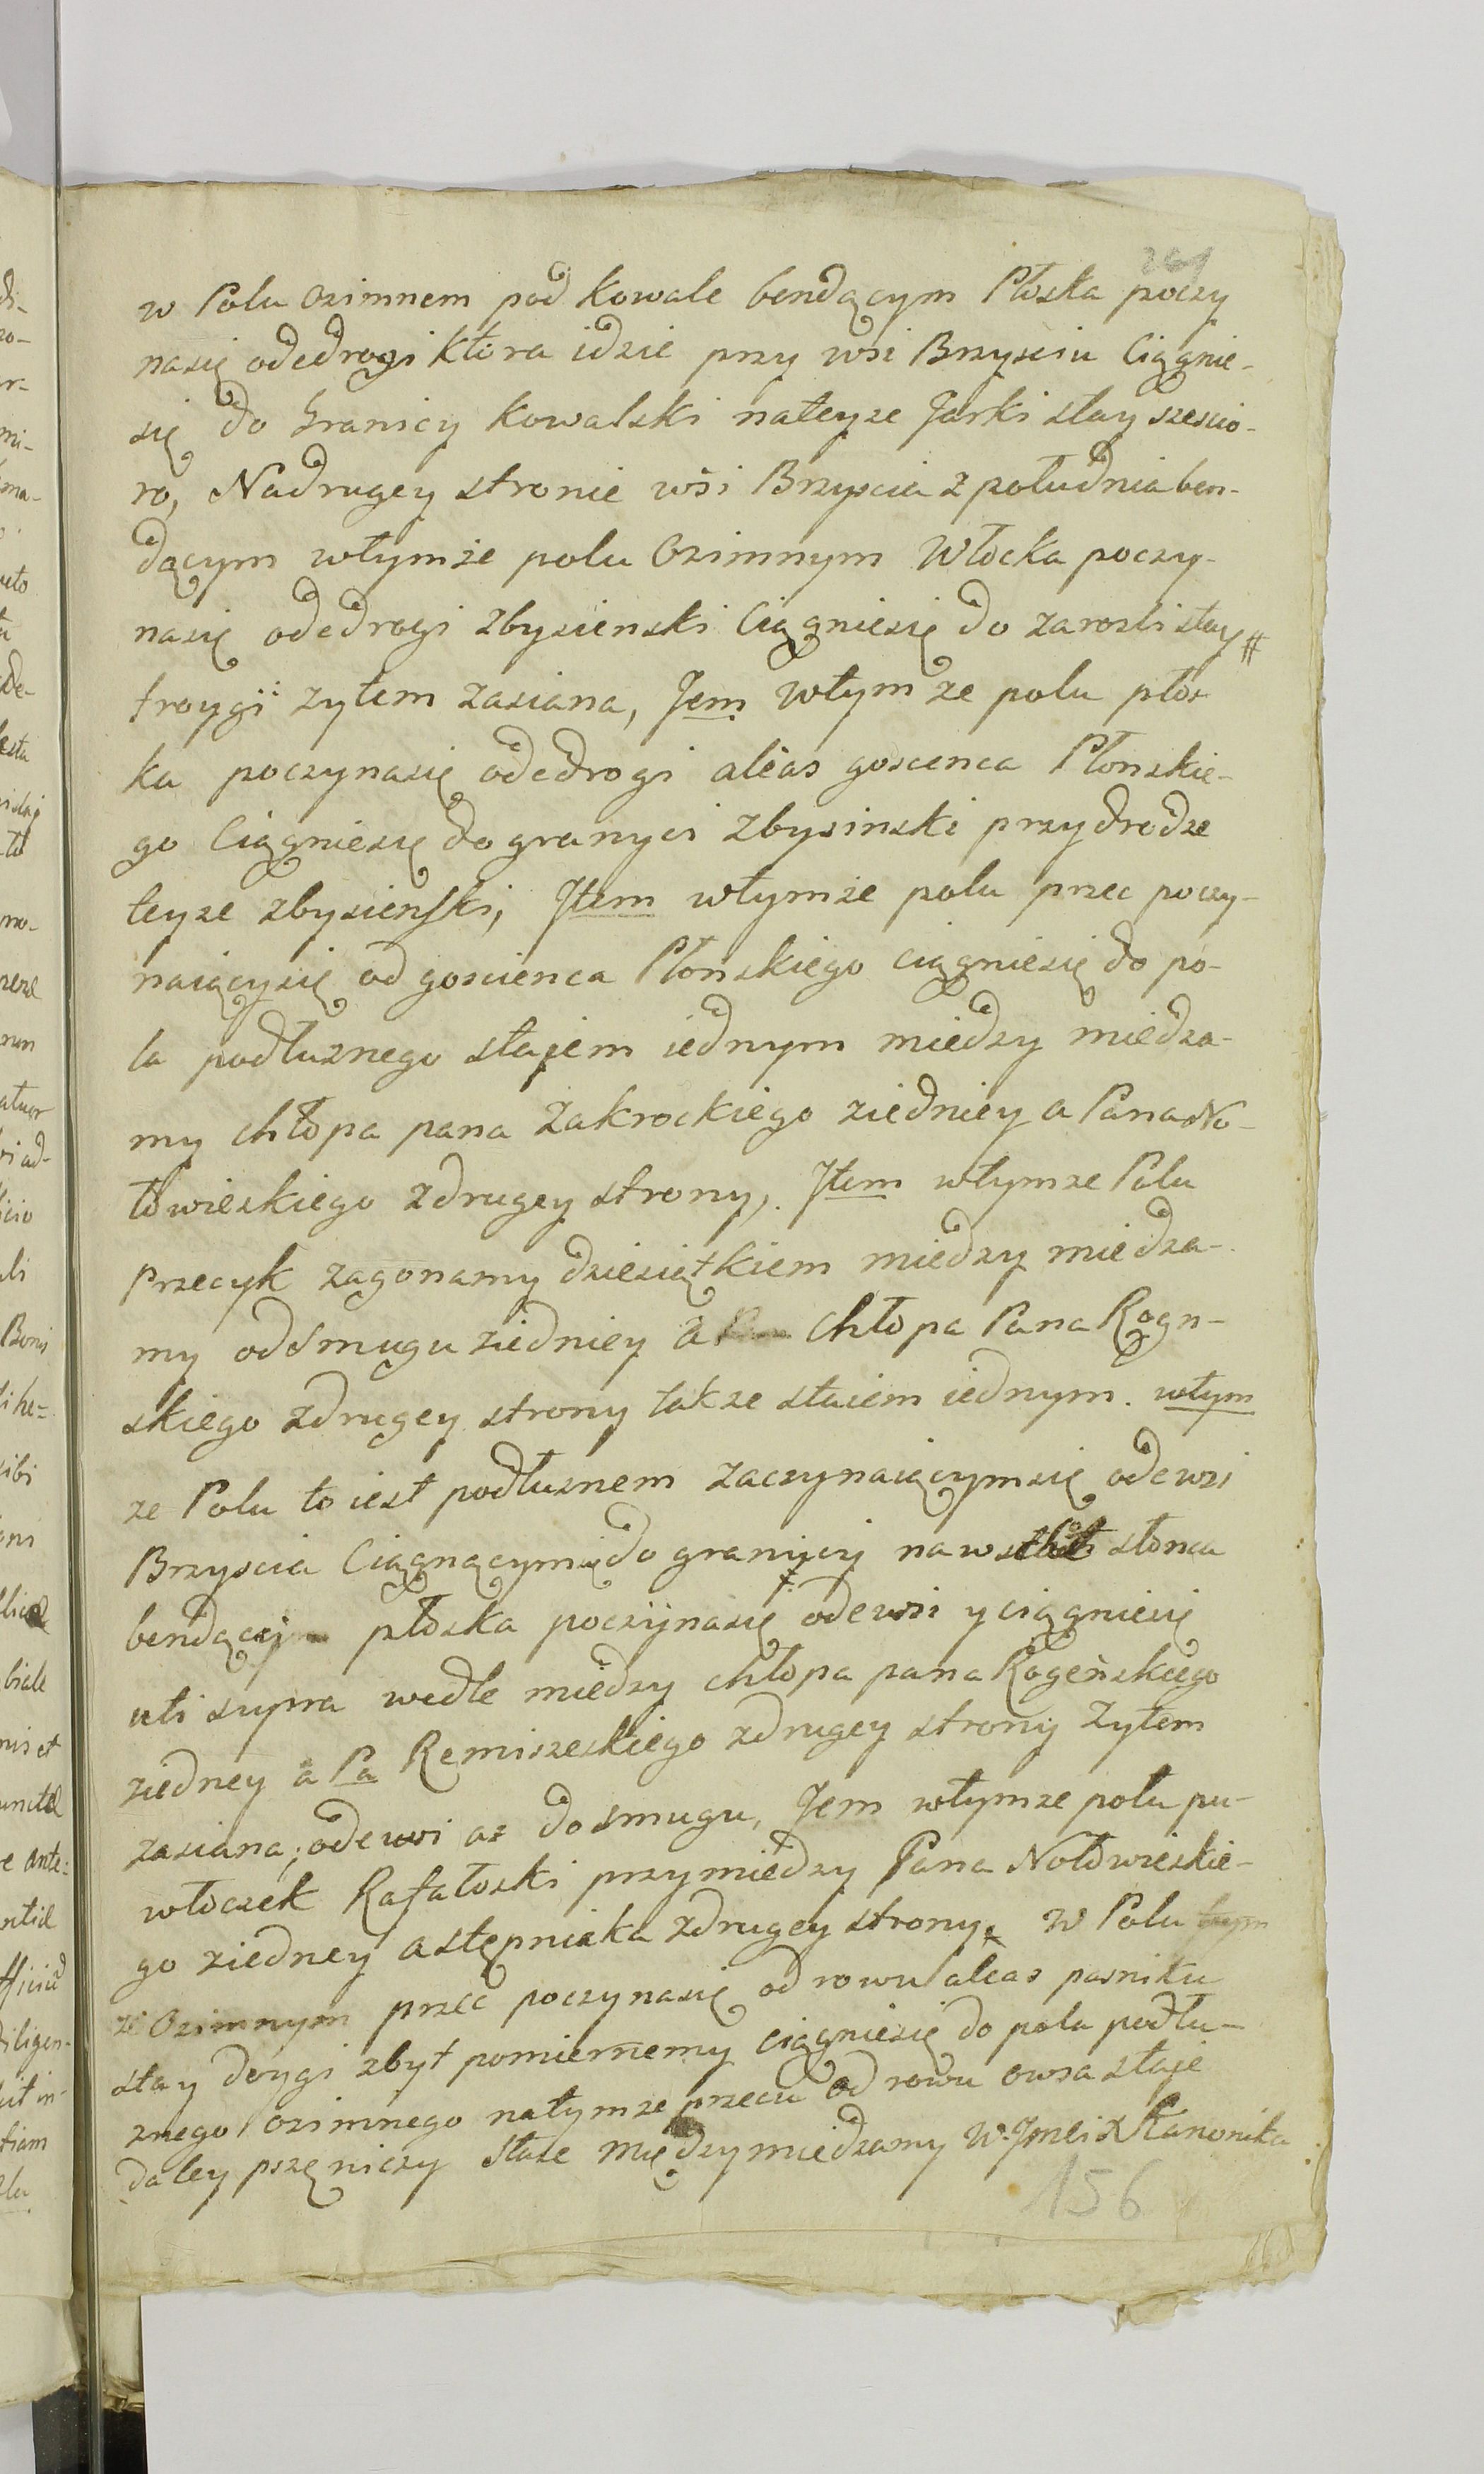 w Polu Ozimnem pod Kowale bendącym Płoska poczy
nasię odedrogi ktora idzie przy wsi Brzyściu Ciągnie-
się do Granicy Kowalski nateyze Jarki stay szescio-
ro, Nadrugey stronie wsi Brzyscia z południa ben-
dącym wtymże polu Ozimnym Włocka poczy-
nasię odedrogi Zbysienski Ciągniesię do zarosli stay #
troygi zytem zasiana, Jem wtym ze polu płos
ka poczynasię odedrogi alias goscenca Płonskie-
go Ciągniesię do granyci Zbysinski przy drodze
teyze zbysienski, Jtem wtymze polu przec poczy-
naiącysię od goscienca Płonskiego ciągniesię do po-
la podłuznego stajem iednym miedzy miedza-
my chłopa pana Zakrockiego ziedniey a Pana No-
towieskiego zdrugey strony, Jtem wtymze Polu
Przecyk zagonamy dziesiątkiem miedzy miedza-
my odsmugu ziedniey a chłopa Pana Rogn-
skiego zdrugey strony takze staiem iednym. wtym
ze Polu to iest podłuznem zaczynaiącymsię odewsi
Brzyscia Ciągnącymsię do granicy słonca
bendący płoska poczynasię odewsi y ciągniesię
uti supra wedle miedzy chłopa pana Rogeńskiego
ziedney a Pa Remiszeskiego zdrugey strony zytem
zasiana, odewsi az do smugu, Jem wtymze polu pu-
włoczek Rafałoski przymiedzy Pana Notowieskie-
go ziedney a stępniaka zdrugey strony, w Polu tym
ze Ozimnym przec poczynasię od rowu alias pasniku
stay dwygi zbyt pomiernemy ciągniesię do pola podłu-
znego ozimnego natymze przecu od rowu owsa staje
daley pszęniczy staie między miedzamy W. Jmci X Kanonika
156